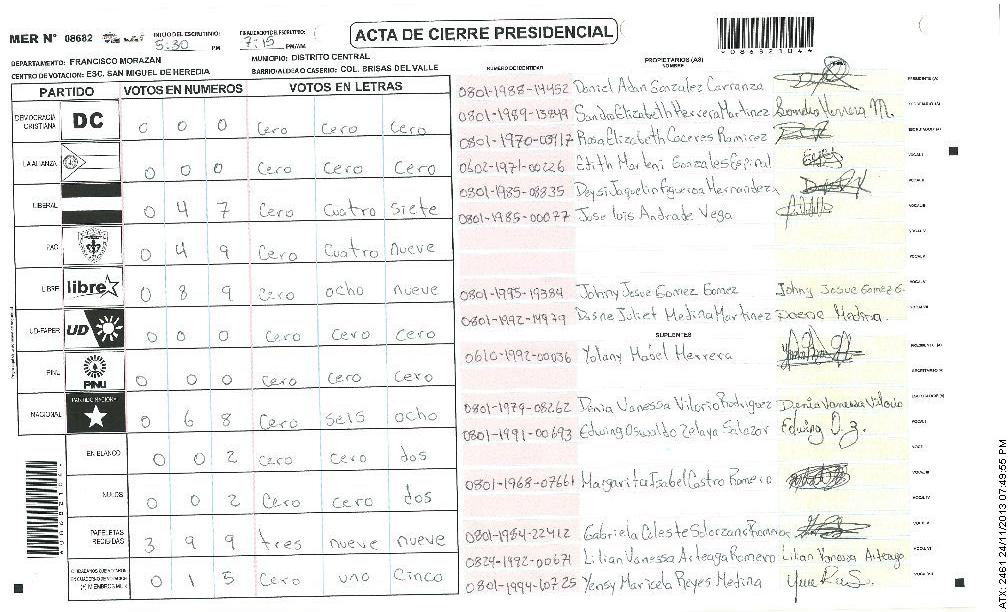 MER N° 08682
INICIO DEL ESCRUTINIO: 5:30 PM
FINALIZACION DEL ESCRUTINIO: 7:15 PM/AM
ACTA DE CIERRE PRESIDENCIAL
08682104
DEPARTAMENTO: FRANCISCO MORAZAN
MUNICIPIO: DISTRITO CENTRAL
CENTRO DE VOTACION: ESC. SAN MIGUEL DE HEREDIA
BARRIO/ALDEA O CASERIO: COL. BRISAS DEL VALLE
PARTIDO VOTOS EN NUMEROS VOTOS EN LETRAS
DEMOCRACIA CRISTIANA DC 0 0 0 Cero Cero Cero
LA ALIANZA 0 0 0 Cero Cero Cero
LIBERAL 0 4 7 Cero Cuatro Siete
PAC 0 4 9 Cero Cuatro nueve
LIBRE libre 0 8 9 Cero ocho nueve
UD-FAPER UD 0 0 0 Cero Cero Cero
PINU PINU 0 0 0 Cero Cero Cero
NACIONAL PARTIDO NACIONAL 0 6 8 Cero seis ocho
EN BLANCO 0 0 2 Cero Cero dos
NULOS 0 0 2 Cero cero dos
PAPELETAS RECIBIDAS 3 9 9 tres nueve nueve
0 1 5 Cero uno Cinco
NUMERO DE IDENTIDAD PROPIETARIOS (AS) NOMBRE
0801-1988-14452 Daniel Adan Gonzalez Carranza PRESIDENTE (A)
0801-1989-13849 Sandra Elizabeth Herrera Martinez Herrera M. SECRETARIO (A)
0801-1970-03917 Rosa Elizabeth Caceres Ramirez ESCRUTADOR (A)
0602-1971-00226 Edith Marleni Gonzales Espinal VOCAL I
0801-1985-08835 Deysi Jaquelin Figueroa Hernandez VOCAL II
0801-1985-00077 Jose luis Andrade Vega VOCAL III
VOCAL IV
VOCAL V
0801-1995-19384 Johny Josue Gomez Gomez Johny Josue Gomez G.
0801-1992-14979 Juliet Medina Martinez Medina.
SUPLENTES
0610-1992-00036 Yolany Mabel Herrera PRESIDENTE (A)
SECRETARIO (A)
0801-1979-08262 Denia Vanessa Vilorio Rodriguez Denia Vanessa Vilorio ESCRUTADOR (A)
0801-1991-00693 Edwing Oswaldo Zelaya Salazar Edwing O. Z. VOCAL I
VOCAL II
0801-1968-07661 Margarita Isabel Castro Romero VOCAL III
VOCAL IV
0801-1984-22412 Gabriela Celeste Solorzano VOCAL V
0824-1992-00671 Lilian Vanessa Arteaga Romero Lilian Vanessa Arteaga VOCAL VI
0801-1994-10725 Yensy Maricela Reyes Medina VOCAL VII
ATX: 2461 24/11/2013 07:49:55 PM